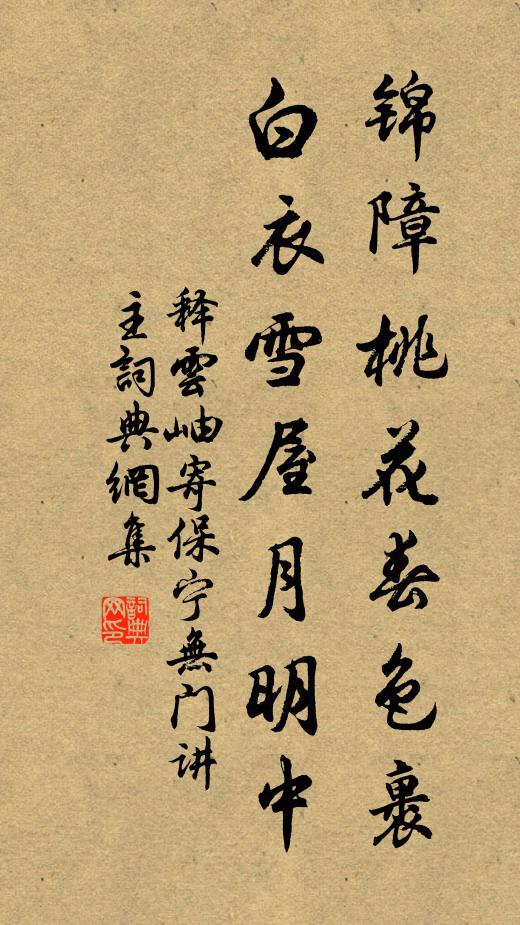 锦障桃花春色裏
白衣雪屋月明中
释雲岫寄保宁無门讲
主詞典網集
詞典
网印